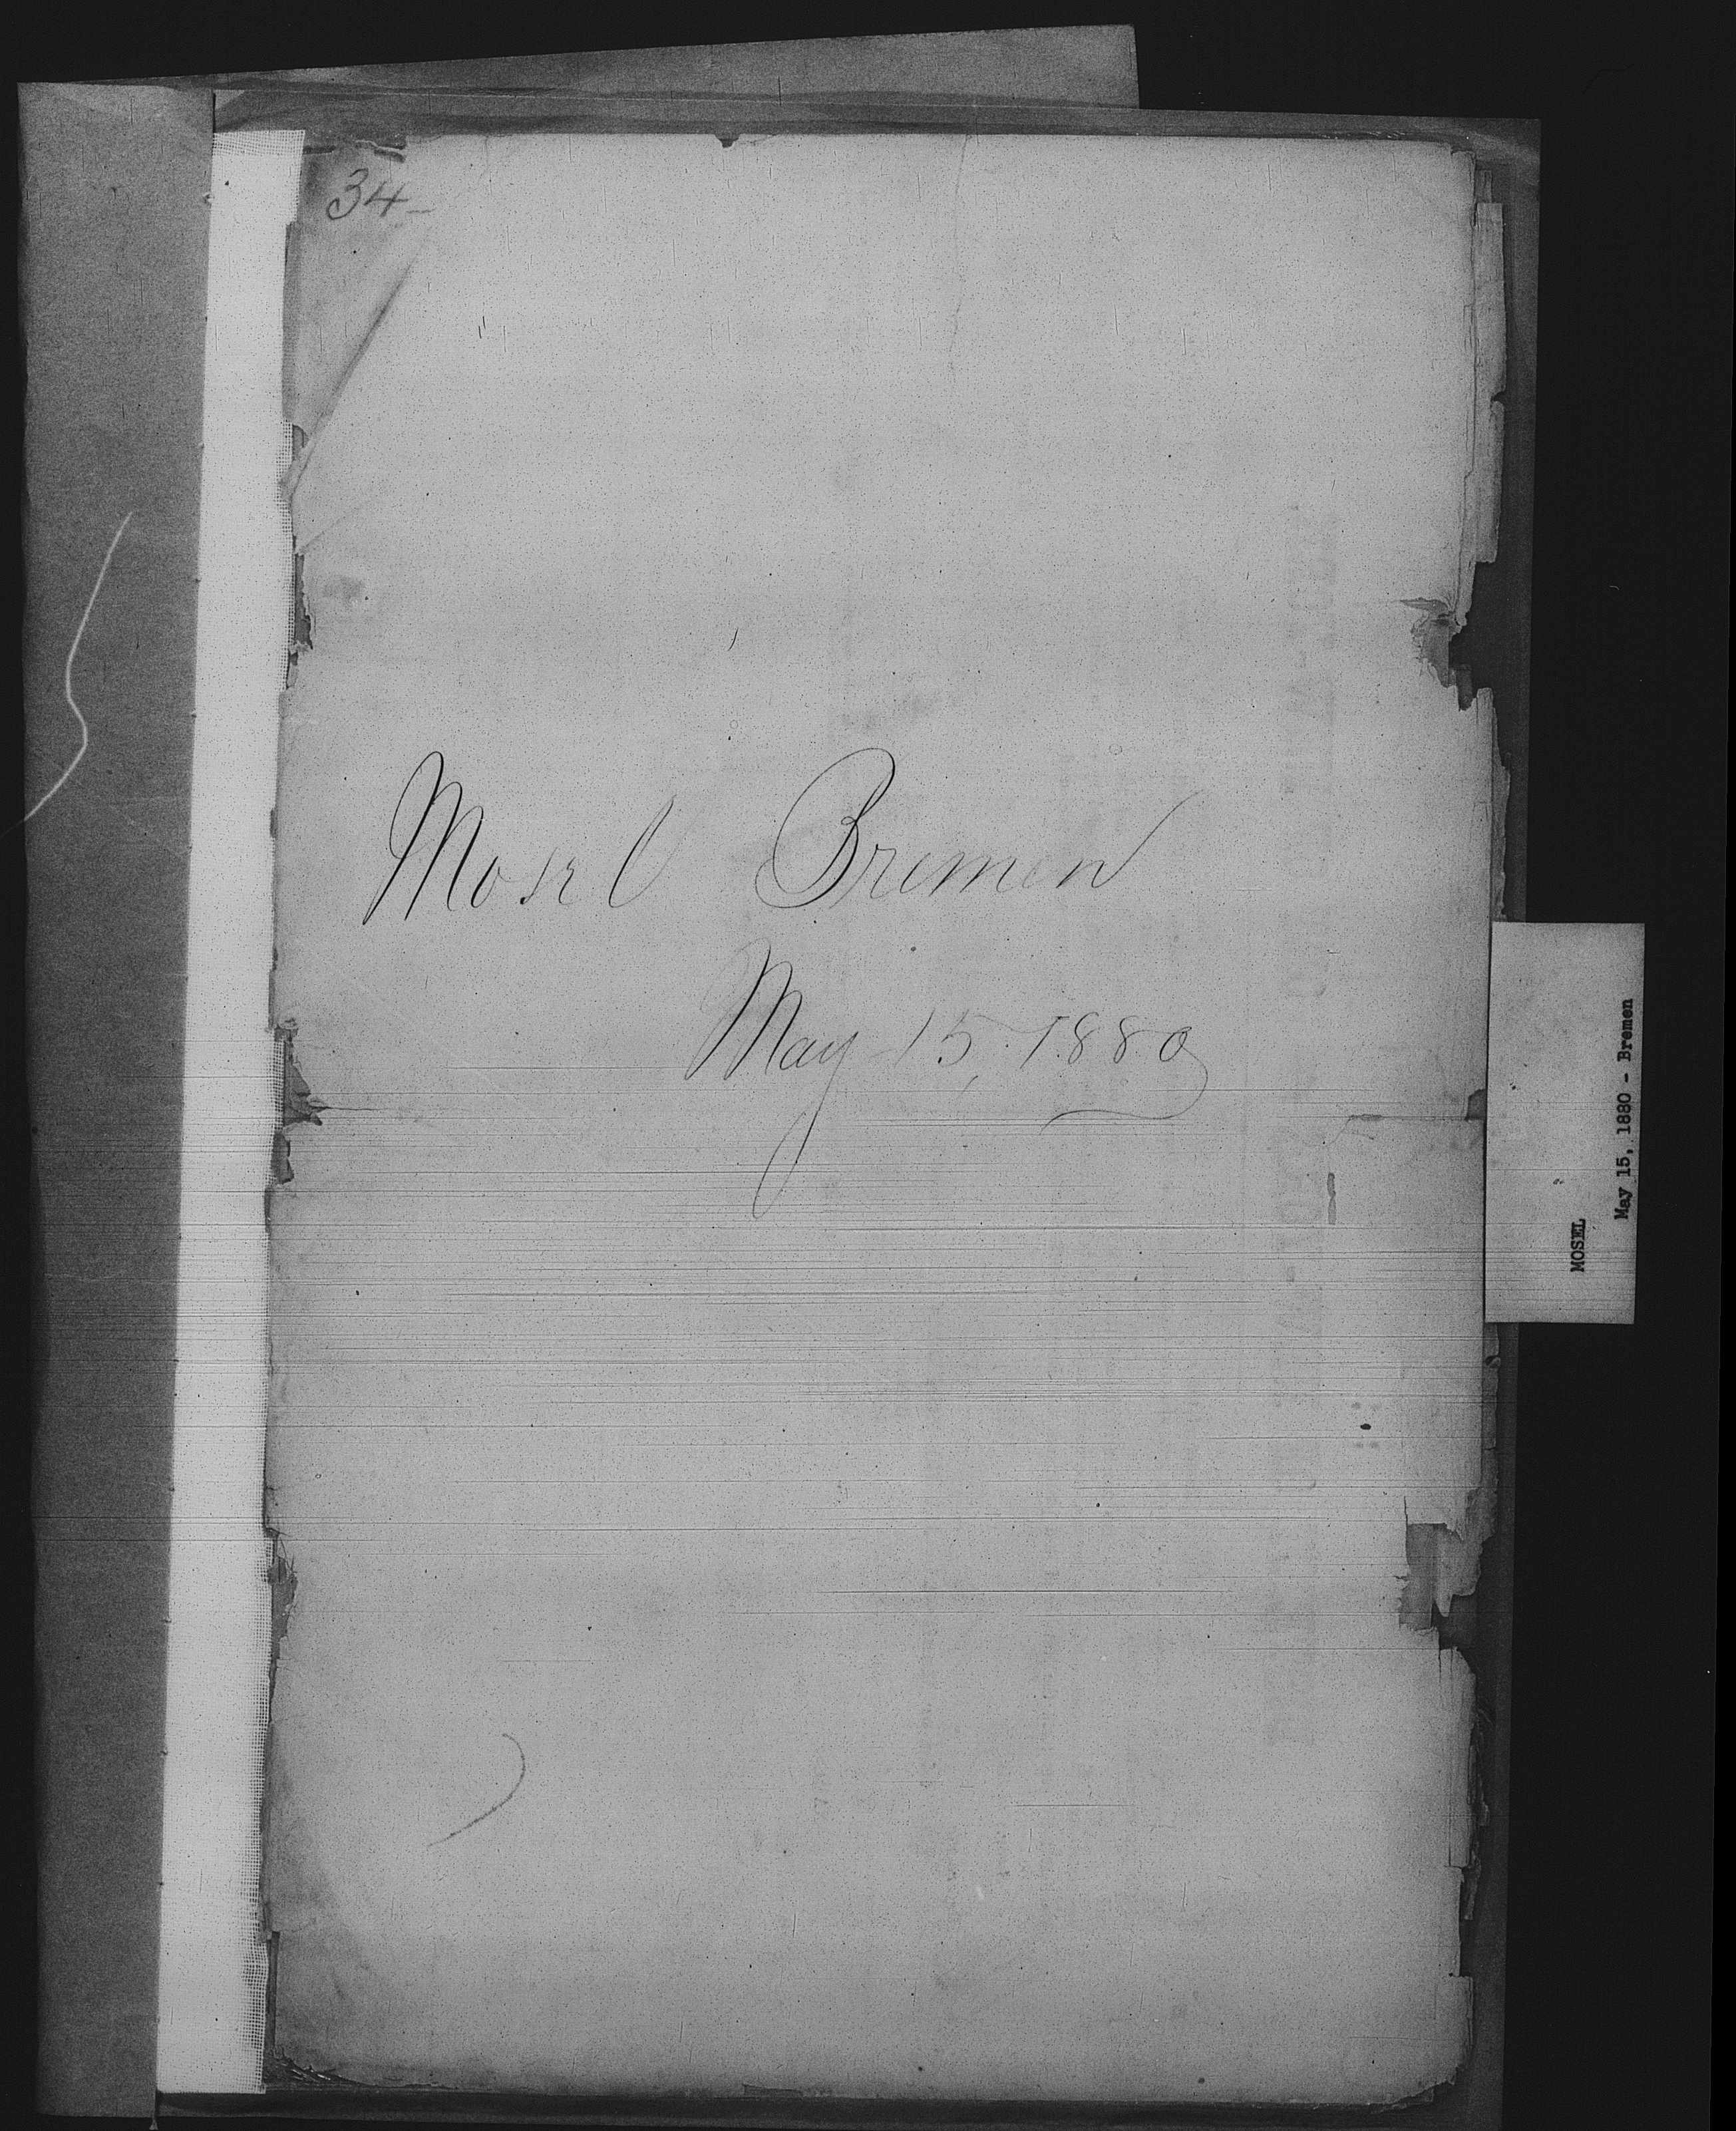 34-
Mosel Bremen
May 15, 1880
MOSEL
May 15, 1880 - Bremen